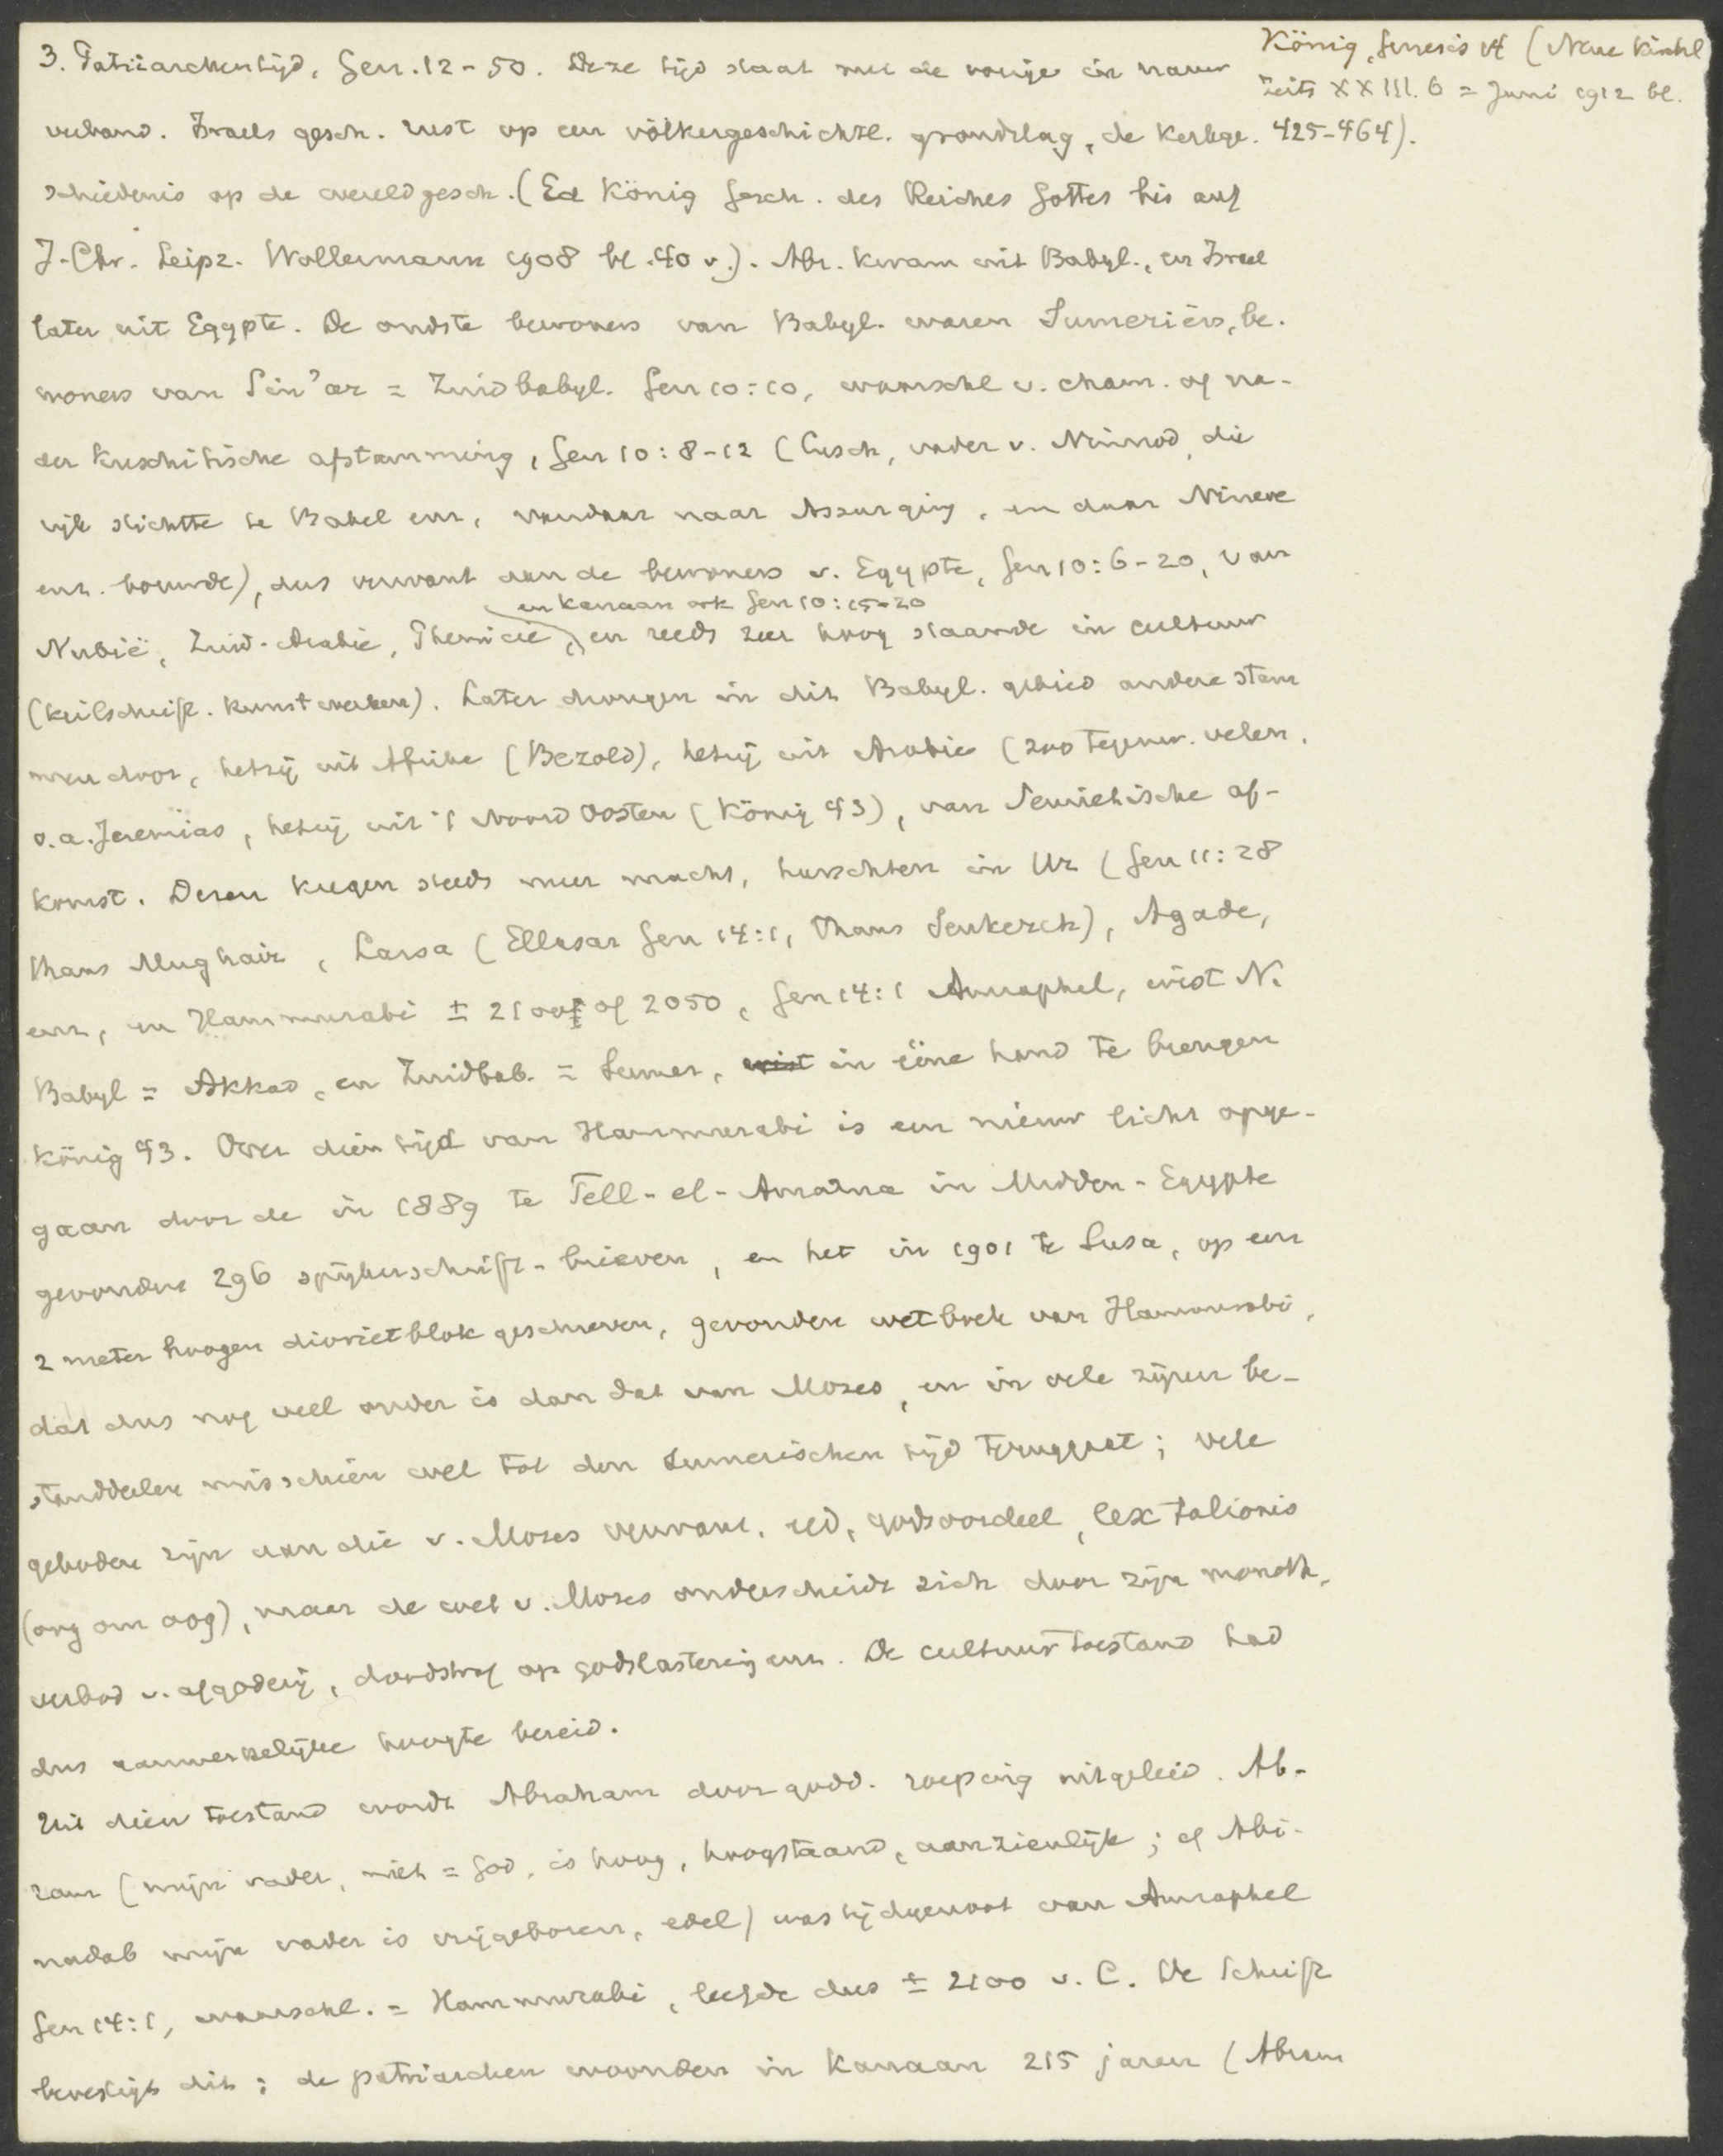 3. Patriarchentijd, Gen. 12-50. Deze tijd staat met de vorige in nauw
verband. Israels gesch. rust op een völkergeschichtl. grondslag, de kerkge-
schiedenis op de wereldgesch. (Ed König Gesch. des Reiches Gottes bis auf
J. Chr. Leipz. Wollermann 1908 bl. 40 v.). Abr. kwam uit Babyl., en Israel
later uit Egypte. De oudste bewoners van Babyl. waren Sumeriërs, be-
woners van Sin'ar = Zuidbabyl. Gen 10:10, waarschl v. cham. of na-
der kuschitische afstamming, Gen 10:8-12 (Cusch, vader v. Nimrod, die
rijk stichtte te Babel enz., vandaar naar Assur ging, en daar Nineve
enz. bouwde), dus verwant aan de bewoners v. Egypte, Gen 10:6-20, van
en Kanaan ook Gen 10:15-20
Nubië, Zuid-Arabie, Phenicie, en reeds zeer hoog staande in cultuur
(keilschrift. kunstwerken). Later drongen in dit Babyl. gebied andere stam
men door, hetzij uit Afrika (Bezold), hetzij uit Arabie (zoo tegenw. velen,
o.a. Jeremias, hetzij uit 't Noord Oosten (König 43), van Semietische af-
komst. Dezen kregen steeds meer macht, heerschten in Ur (Gen 11:28
thans Mughair, Larsa (Ellasar Gen 14:1, thans Senkereh), Agade,
enz, en Hammurabi ± 2100 of 2050, Gen 14:1 Amraphel, wist N.
Babyl = Akkad, en Zuidbab. = Sumer, wist in ééne hand te brengen
König 43. Over dien tijd van Hammurabi is een nieuw licht opge-
gaan door de in 1889 te Tell-el-Amarna in Midden-Egypte
gevonden 296 spijkerschrift-brieven, en het in 1901 te Susa, op een
2 meter hoogen dioriet blok geschreven, gevonden wetboek van Hammurabi,
dat dus nog veel ouder is dan dat van Mozes, en in vele zijner be-
standdeelen misschien wel tot den Sumerischen tijd teruggaat; vele
geboden zijn aan die v. Mozes verwant, eed, godsoordeel, lex talionis
(oog om oog), maar de wet v. Mozes onderscheidt zich door zijn monoth.,
verbod v. afgoderij, doodstraf op godslasterij enz. De cultuurtoestand had
dus aanmerkelijke hoogte bereid.
Uit dien toestand wordt Abraham door godd. roeping uitgeleid. Ab-
ram (mijn vader, niet = God, is hoog, hoogstaand, aanzienlijk; cf Abi-
nadab mijn vader is vrijgeboren, edel) was tijdgenoot van Amraphel
Gen 14:1, waarschl. = Hammurabi, leefde dus ± 2100 v. C. De Schrift
bevestigt dit; de patriarchen woonden in Kanaan 215 jaren (Abram
König, Genesis 14 (Neue kirchl
Zeits XXIII. 6 = Juni 1912 bl.
425-464).